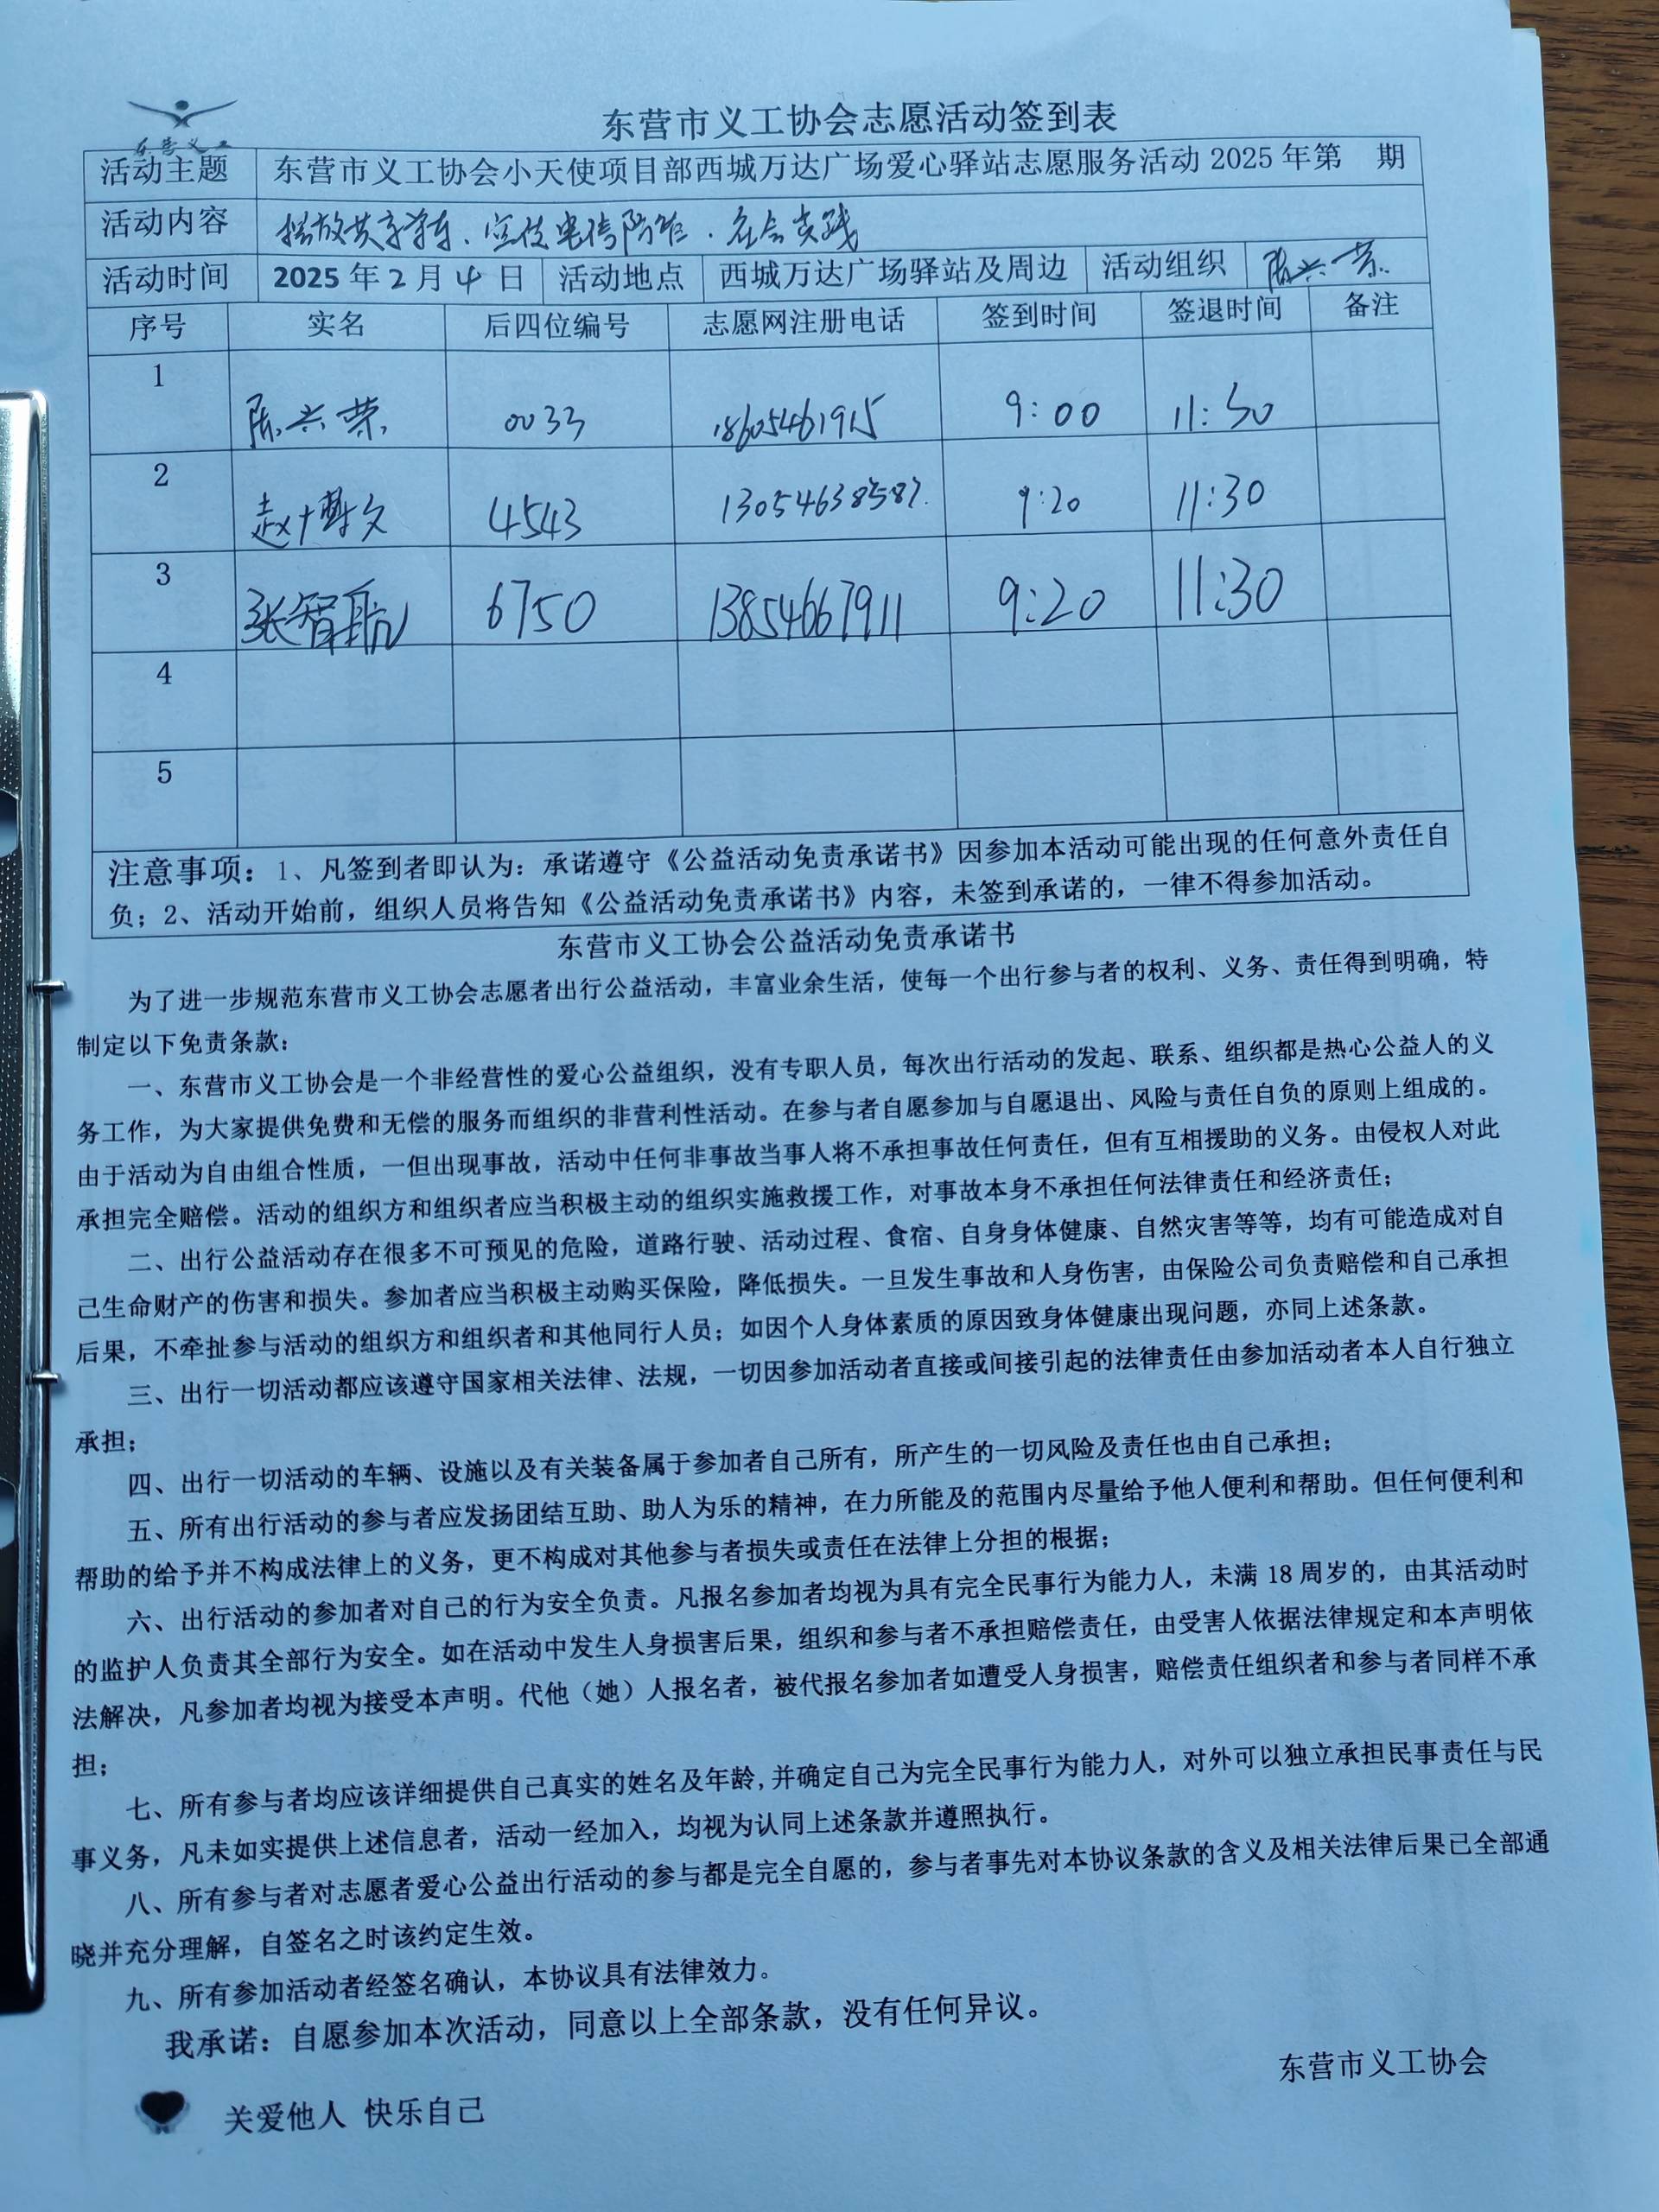 东营义工
东营市义工协会志愿活动签到表
活动主题 东营市义工协会小天使项目部西城万达广场爱心驿站志愿服务活动 2025 年第 期
活动内容 摆放共享单车、宣传电信防诈、社会实践
活动时间 2025 年 2 月 4 日 活动地点 西城万达广场驿站及周边 活动组织 陈兴荣
序号 实名 后四位编号 志愿网注册电话 签到时间 签退时间 备注
1 陈兴荣 0033 18605461915 9:00 11:30
2 赵博文 4543 13054638587 9:20 11:30
3 张智航 6750 13854667911 9:20 11:30
4
5
注意事项：1、凡签到者即认为：承诺遵守《公益活动免责承诺书》因参加本活动可能出现的任何意外责任自
负；2、活动开始前，组织人员将告知《公益活动免责承诺书》内容，未签到承诺的，一律不得参加活动。
东营市义工协会公益活动免责承诺书
为了进一步规范东营市义工协会志愿者出行公益活动，丰富业余生活，使每一个出行参与者的权利、义务、责任得到明确，特
制定以下免责条款：
一、东营市义工协会是一个非经营性的爱心公益组织，没有专职人员，每次出行活动的发起、联系、组织都是热心公益人的义
务工作，为大家提供免费和无偿的服务而组织的非营利性活动。在参与者自愿参加与自愿退出、风险与责任自负的原则上组成的。
由于活动为自由组合性质，一但出现事故，活动中任何非事故当事人将不承担事故任何责任，但有互相援助的义务。由侵权人对此
承担完全赔偿。活动的组织方和组织者应当积极主动的组织实施救援工作，对事故本身不承担任何法律责任和经济责任；
二、出行公益活动存在很多不可预见的危险，道路行驶、活动过程、食宿、自身身体健康、自然灾害等等，均有可能造成对自
己生命财产的伤害和损失。参加者应当积极主动购买保险，降低损失。一旦发生事故和人身伤害，由保险公司负责赔偿和自己承担
后果，不牵扯参与活动的组织方和组织者和其他同行人员；如因个人身体素质的原因致身体健康出现问题，亦同上述条款。
三、出行一切活动都应该遵守国家相关法律、法规，一切因参加活动者直接或间接引起的法律责任由参加活动者本人自行独立
承担；
四、出行一切活动的车辆、设施以及有关装备属于参加者自己所有，所产生的一切风险及责任也由自己承担；
五、所有出行活动的参与者应发扬团结互助、助人为乐的精神，在力所能及的范围内尽量给予他人便利和帮助。但任何便利和
帮助的给予并不构成法律上的义务，更不构成对其他参与者损失或责任在法律上分担的根据；
六、出行活动的参加者对自己的行为安全负责。凡报名参加者均视为具有完全民事行为能力人，未满 18 周岁的，由其活动时
的监护人负责其全部行为安全。如在活动中发生人身损害后果，组织和参与者不承担赔偿责任，由受害人依据法律规定和本声明依
法解决，凡参加者均视为接受本声明。代他（她）人报名者，被代报名参加者如遭受人身损害，赔偿责任组织者和参与者同样不承
担；
七、所有参与者均应该详细提供自己真实的姓名及年龄,并确定自己为完全民事行为能力人，对外可以独立承担民事责任与民
事义务，凡未如实提供上述信息者，活动一经加入，均视为认同上述条款并遵照执行。
八、所有参与者对志愿者爱心公益出行活动的参与都是完全自愿的，参与者事先对本协议条款的含义及相关法律后果已全部通
晓并充分理解，自签名之时该约定生效。
九、所有参加活动者经签名确认，本协议具有法律效力。
我承诺：自愿参加本次活动，同意以上全部条款，没有任何异议。
东营市义工协会
关爱他人 快乐自己